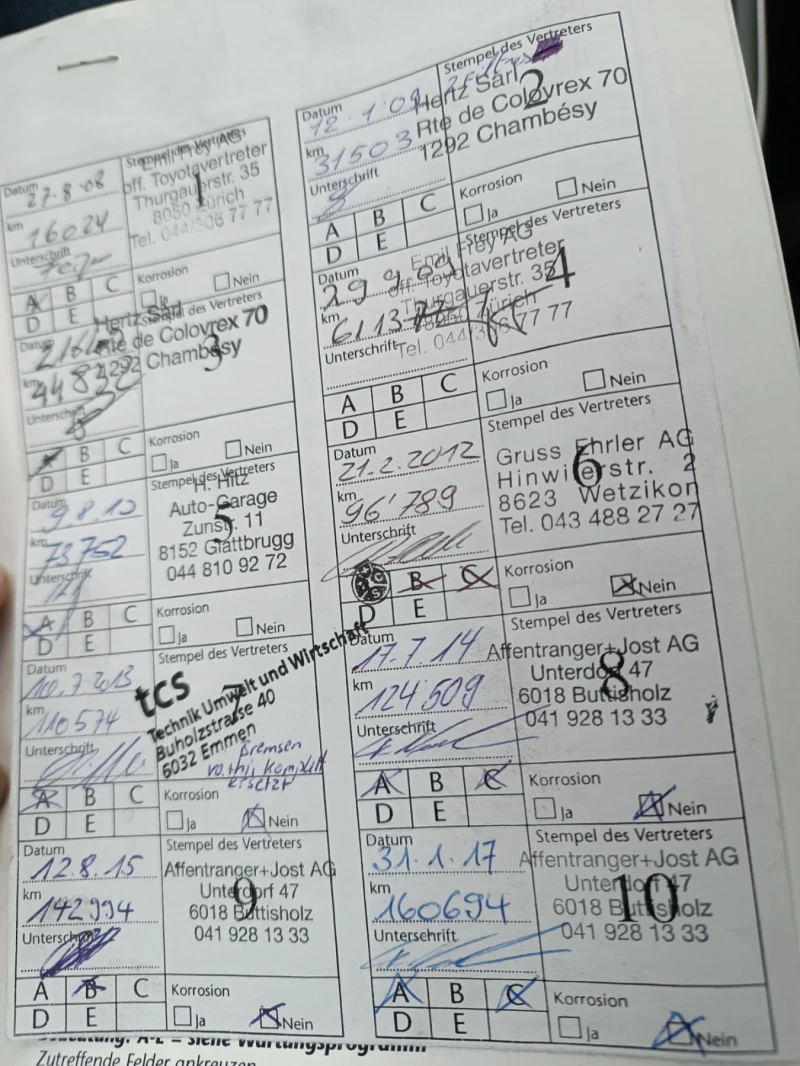 Datum 27.8.08
km 16024
Unterschrift
Stempel des Vertreters
Emil Frey AG
off. Toyotavertreter
Thurgauerstr. 35
8050 Zürich
Tel. 044/306 77 77
1
A B C
D E
Korrosion
Ja Nein
Datum 12.1.09
km 31503
Unterschrift
Stempel des Vertreters
Hertz Sàrl
Rte de Colovrex 70
1292 Chambésy
2
A B C
D E
Korrosion
Ja Nein
Datum
km
Unterschrift
Stempel des Vertreters
Hertz Sàrl
Rte de Colovrex 70
1292 Chambésy
3
A B C
D E
Korrosion
Ja Nein
Datum 29.9.09
km
Unterschrift
Stempel des Vertreters
Emil Frey AG
off. Toyotavertreter
Thurgauerstr. 35
8050 Zürich
Tel. 044/306 77 77
4
A B C
D E
Korrosion
Ja Nein
Datum 9.8.10
km 73752
Unterschrift
Stempel des Vertreters
H. Hitz
Auto-Garage
Zunstr. 11
8152 Glattbrugg
044 810 92 72
5
A B C
D E
Korrosion
Ja Nein
Datum 21.2.2012
km 96'789
Unterschrift
Stempel des Vertreters
Gruss Ehrler AG
Hinwilerstr. 2
8623 Wetzikon
Tel. 043 488 27 27
6
B C
D E
Korrosion
Ja Nein
Datum 10.7.2013
km 110574
Unterschrift
Stempel des Vertreters
tcs
Technik Umwelt und Wirtschaft
Buholzstrasse 40
6032 Emmen
7
Bremsen
komplett
ersetzt
A B C
D E
Korrosion
Ja Nein
Datum 17.7.14
km 124509
Unterschrift
Stempel des Vertreters
Affentranger+Jost AG
Unterdorf 47
6018 Buttisholz
041 928 13 33
8
A B C
D E
Korrosion
Ja Nein
Datum 12.8.15
km 142994
Unterschrift
Stempel des Vertreters
Affentranger+Jost AG
Unterdorf 47
6018 Buttisholz
041 928 13 33
9
A B C
D E
Korrosion
Ja Nein
Datum 31.1.17
km 160694
Unterschrift
Stempel des Vertreters
Affentranger+Jost AG
Unterdorf 47
6018 Buttisholz
041 928 13 33
10
A B C
D E
Korrosion
Ja Nein
A-E = siehe Wartungsprogramm
Zutreffende Felder ankreuzen